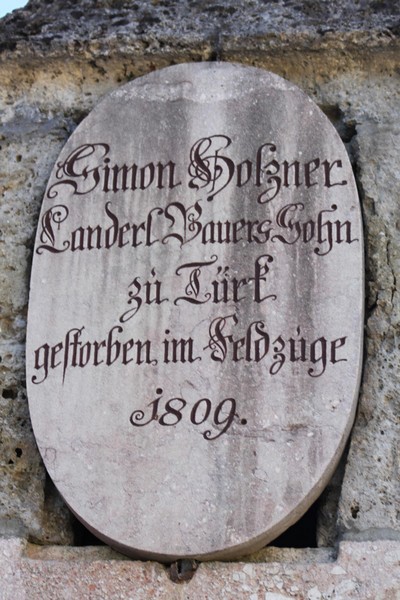 Simon Holzner
Landerl Bauers Sohn
zu Türk
gestorben im Feldzuge
1809.